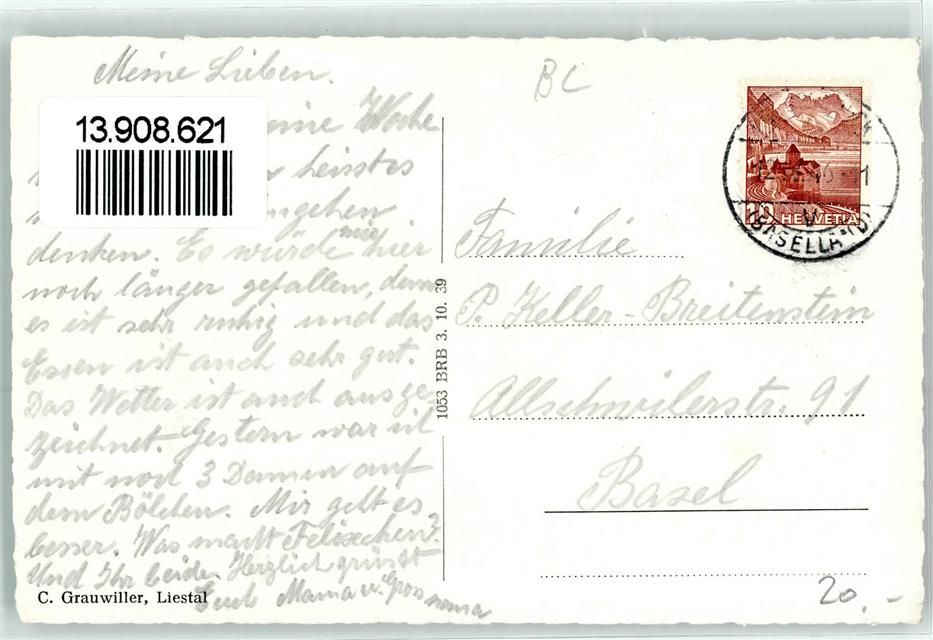 Meine Lieben.
eine Woche
heisst es
angehen
denken. Es würde mir hier
noch länger gefallen, denn
es ist sehr ruhig und das
Essen ist auch sehr gut.
Das Wetter ist auch ausge-
zeichnet. Gestern war ich
mit noch 3 Damen auf
dem Bölchen. Mir geht es
besser. Was macht Felixchen?
Und Ihr beide. Herzlich grüsst
Euch Mama u. Grossmama
C. Grauwiller, Liestal
13.908.621
1053 BRB 3. 10. 39
BL
HELVETIA
10
(BASELLAND)
Familie
P. Keller-Breitenstein
Allschwilerstr. 91
Basel
20.-